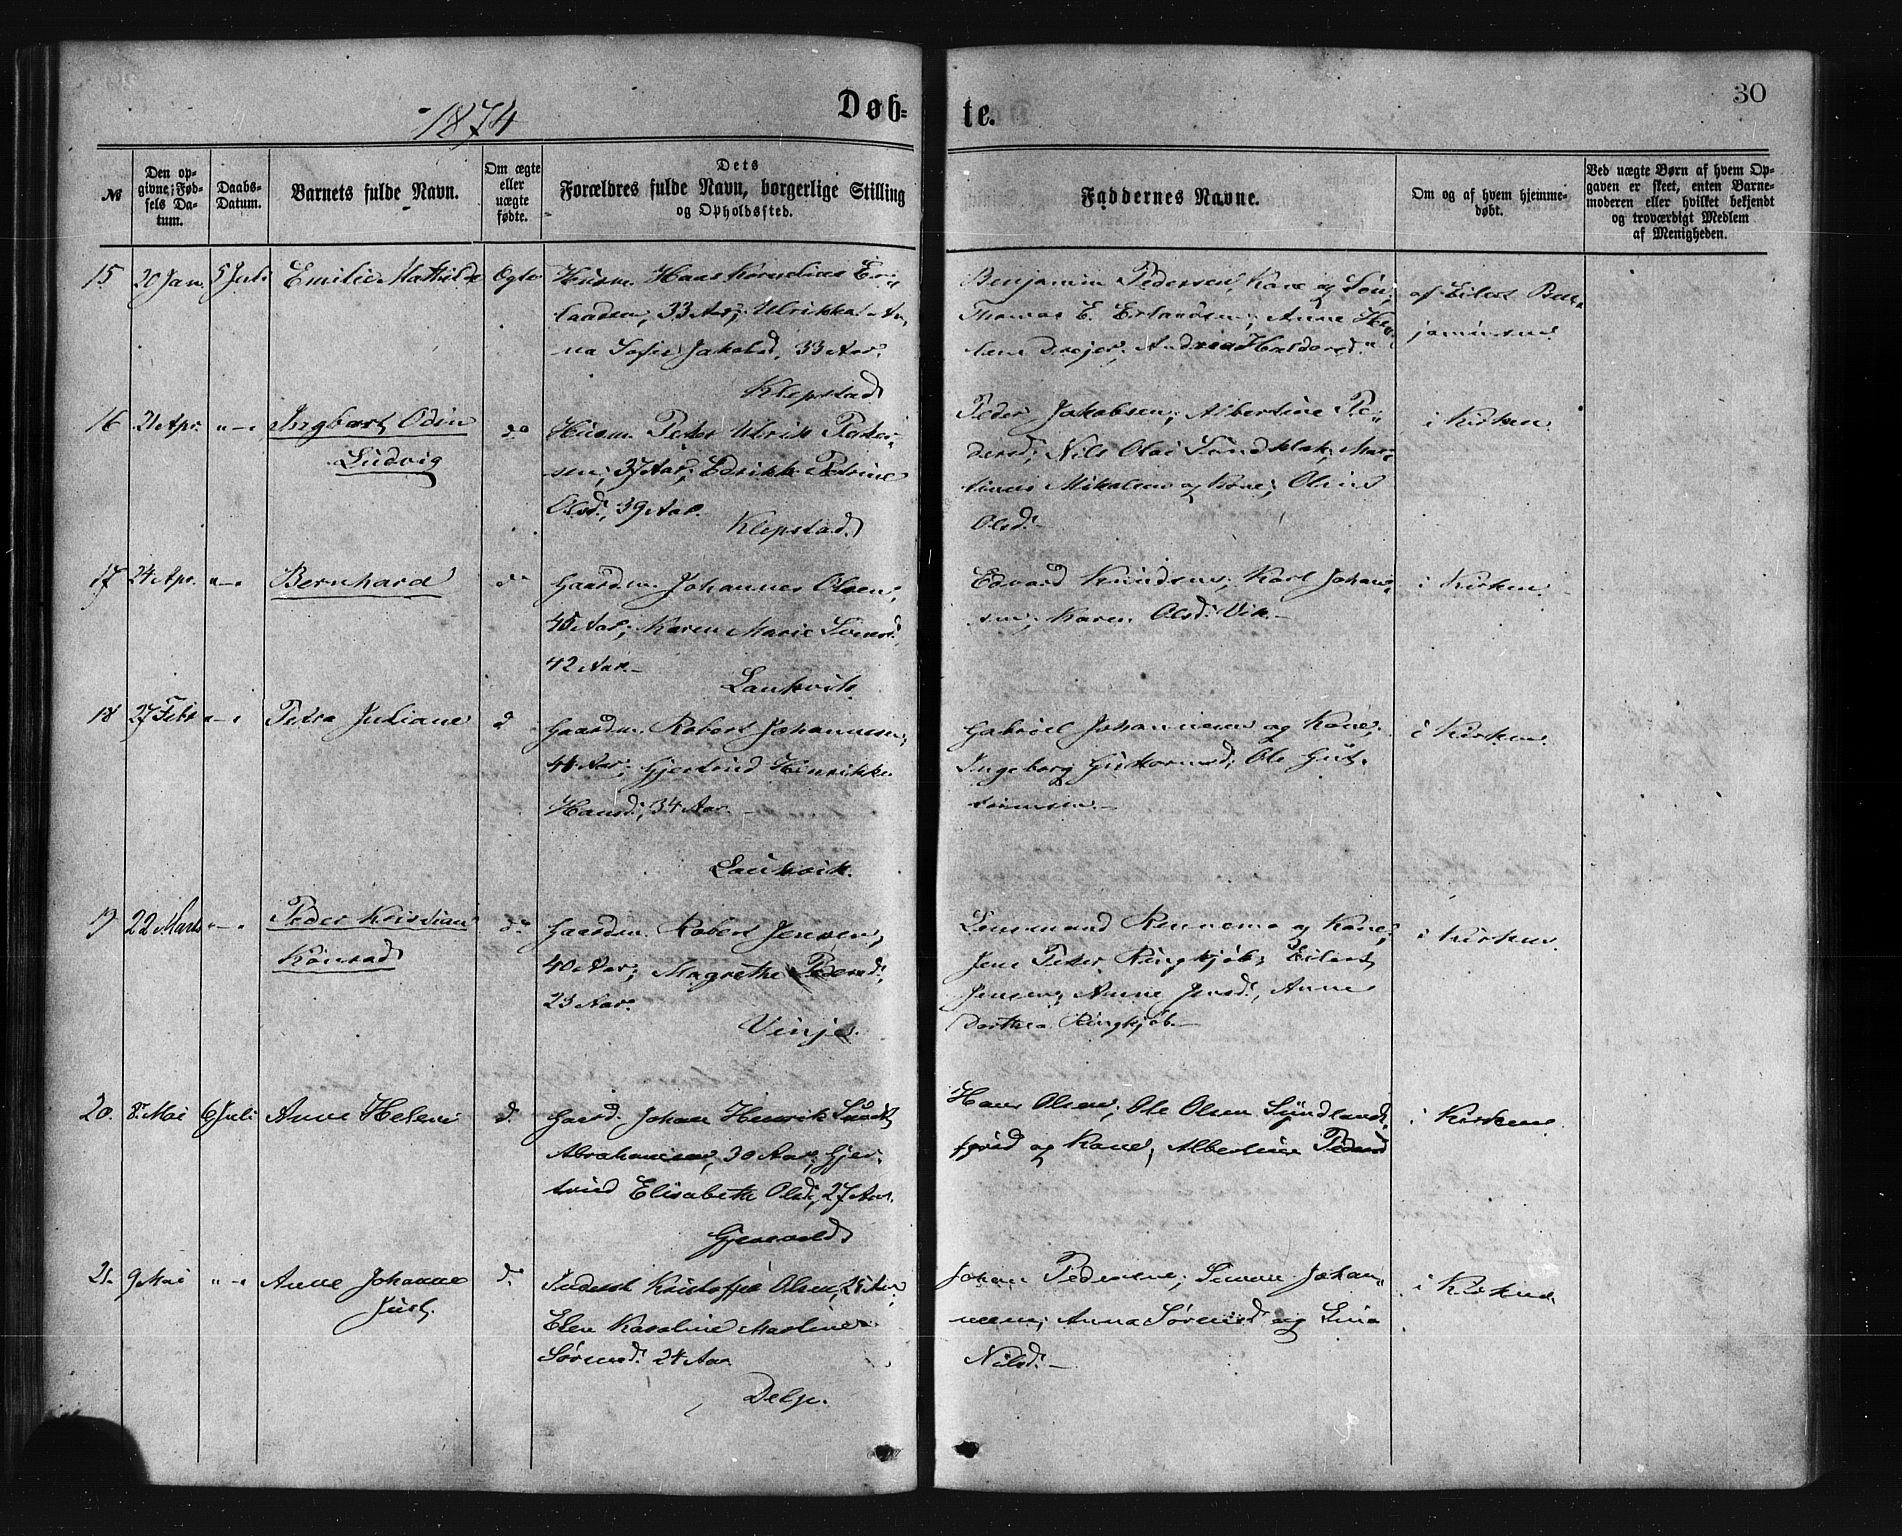 30
1874
Døb= te.
№
Den op-
givne Fød-
sels Da-
tum.
Daabs-
Datum.
Barnets fulde Navn.
Om ægte
eller
uægte
fødte.
Dets
Forældres fulde Navn, borgerlige Stilling
og Opholdssted.
Faddernes Navne.
Om og af hvem hjemme-
døbt.
Ved uægte Børn af hvem Op-
gaven er skeet, enten Barne-
moderen eller hvilket bekjendt
og troværdigt Medlem
af Menigheden.
15 20 Jan. 5 Juli Emilie Mathilde Ægte
Husm. Hans Kornelius Er-
landsen, 33 Aar; Ulrikka An-
na Sofie Jakobsd. 33 Aar.
Klepstad
Benjamin Pedersen, Kone og Søn;
Thomas E. Erlandsen; Anne He-
lene Drejer;
af Eilert Ben-
jaminsen
16 21 Apr. " - " Ingbart Odin
Ludvig
do
Husm. Peder Ulrik Peder-
sen, 37 Aar; Edrikke Petrine
Olsd., 39 Aar.
Klepstad.
Peder Jakobsen; Albertine Pe-
dersd; Nils Olai Sundklak; Mar-
Mikalsen og Kone;
Olsd.
i Kirken.
17 24 Apr. " - " Bernhard do
Gaardm. Johannes Olsen,
45 Aar; Karen Marie
42 Aar.
Laukvik.
Edvard Knudsen; Karl Johan-
sen; Karen Olsd. Vik.
i Kirken.
18 27 Febr " - " Petra Juliane d
Gaardm. Robert Johannesen,
Aar; Gjertrud Henrikke
Hansd; 34 Aar
Laukvik.
Gabriel Johannesen og Kone;
Ingeborg Guttormsd; Ole Gut-
tormsen.
i Kirken.
19 22 Marts " - " Peder Kristian
Konrad
do
Gaardm. Robert Jensen,
40 Aar; Magrethe Pedersd.
23 Aar.
Vinje.
Lensmand Rennemo og Kone;
Jens Peter Ringkjøb; Eilert
Jensen; Anne Jensd., Anne
Dorthea Ringkjøb.
i Kirken.
20. 8. Mai 6 Juli Anne Helene d.
Gaard. Johan Henrik
Abrahamsen, 30 Aar; Gjer-
trud Elisabeth Olsd, 27 Aar.
Gjerevold
Hans Olsen; Ole Olsen Sundlands-
fjord og Kone; Albertine Pedersd
i Kirken.
21. 9 Mai " - " Anne Johanne
Just.
d.
Inderst Kristoffer Olsen, Aar
Elen Karoline Martine
Sørensd. 24 Aar
Delp.
Johan Pedersen; Simon Johan-
nesen; Anna Sørensd og Lina
Nilsd.
i Kirken.